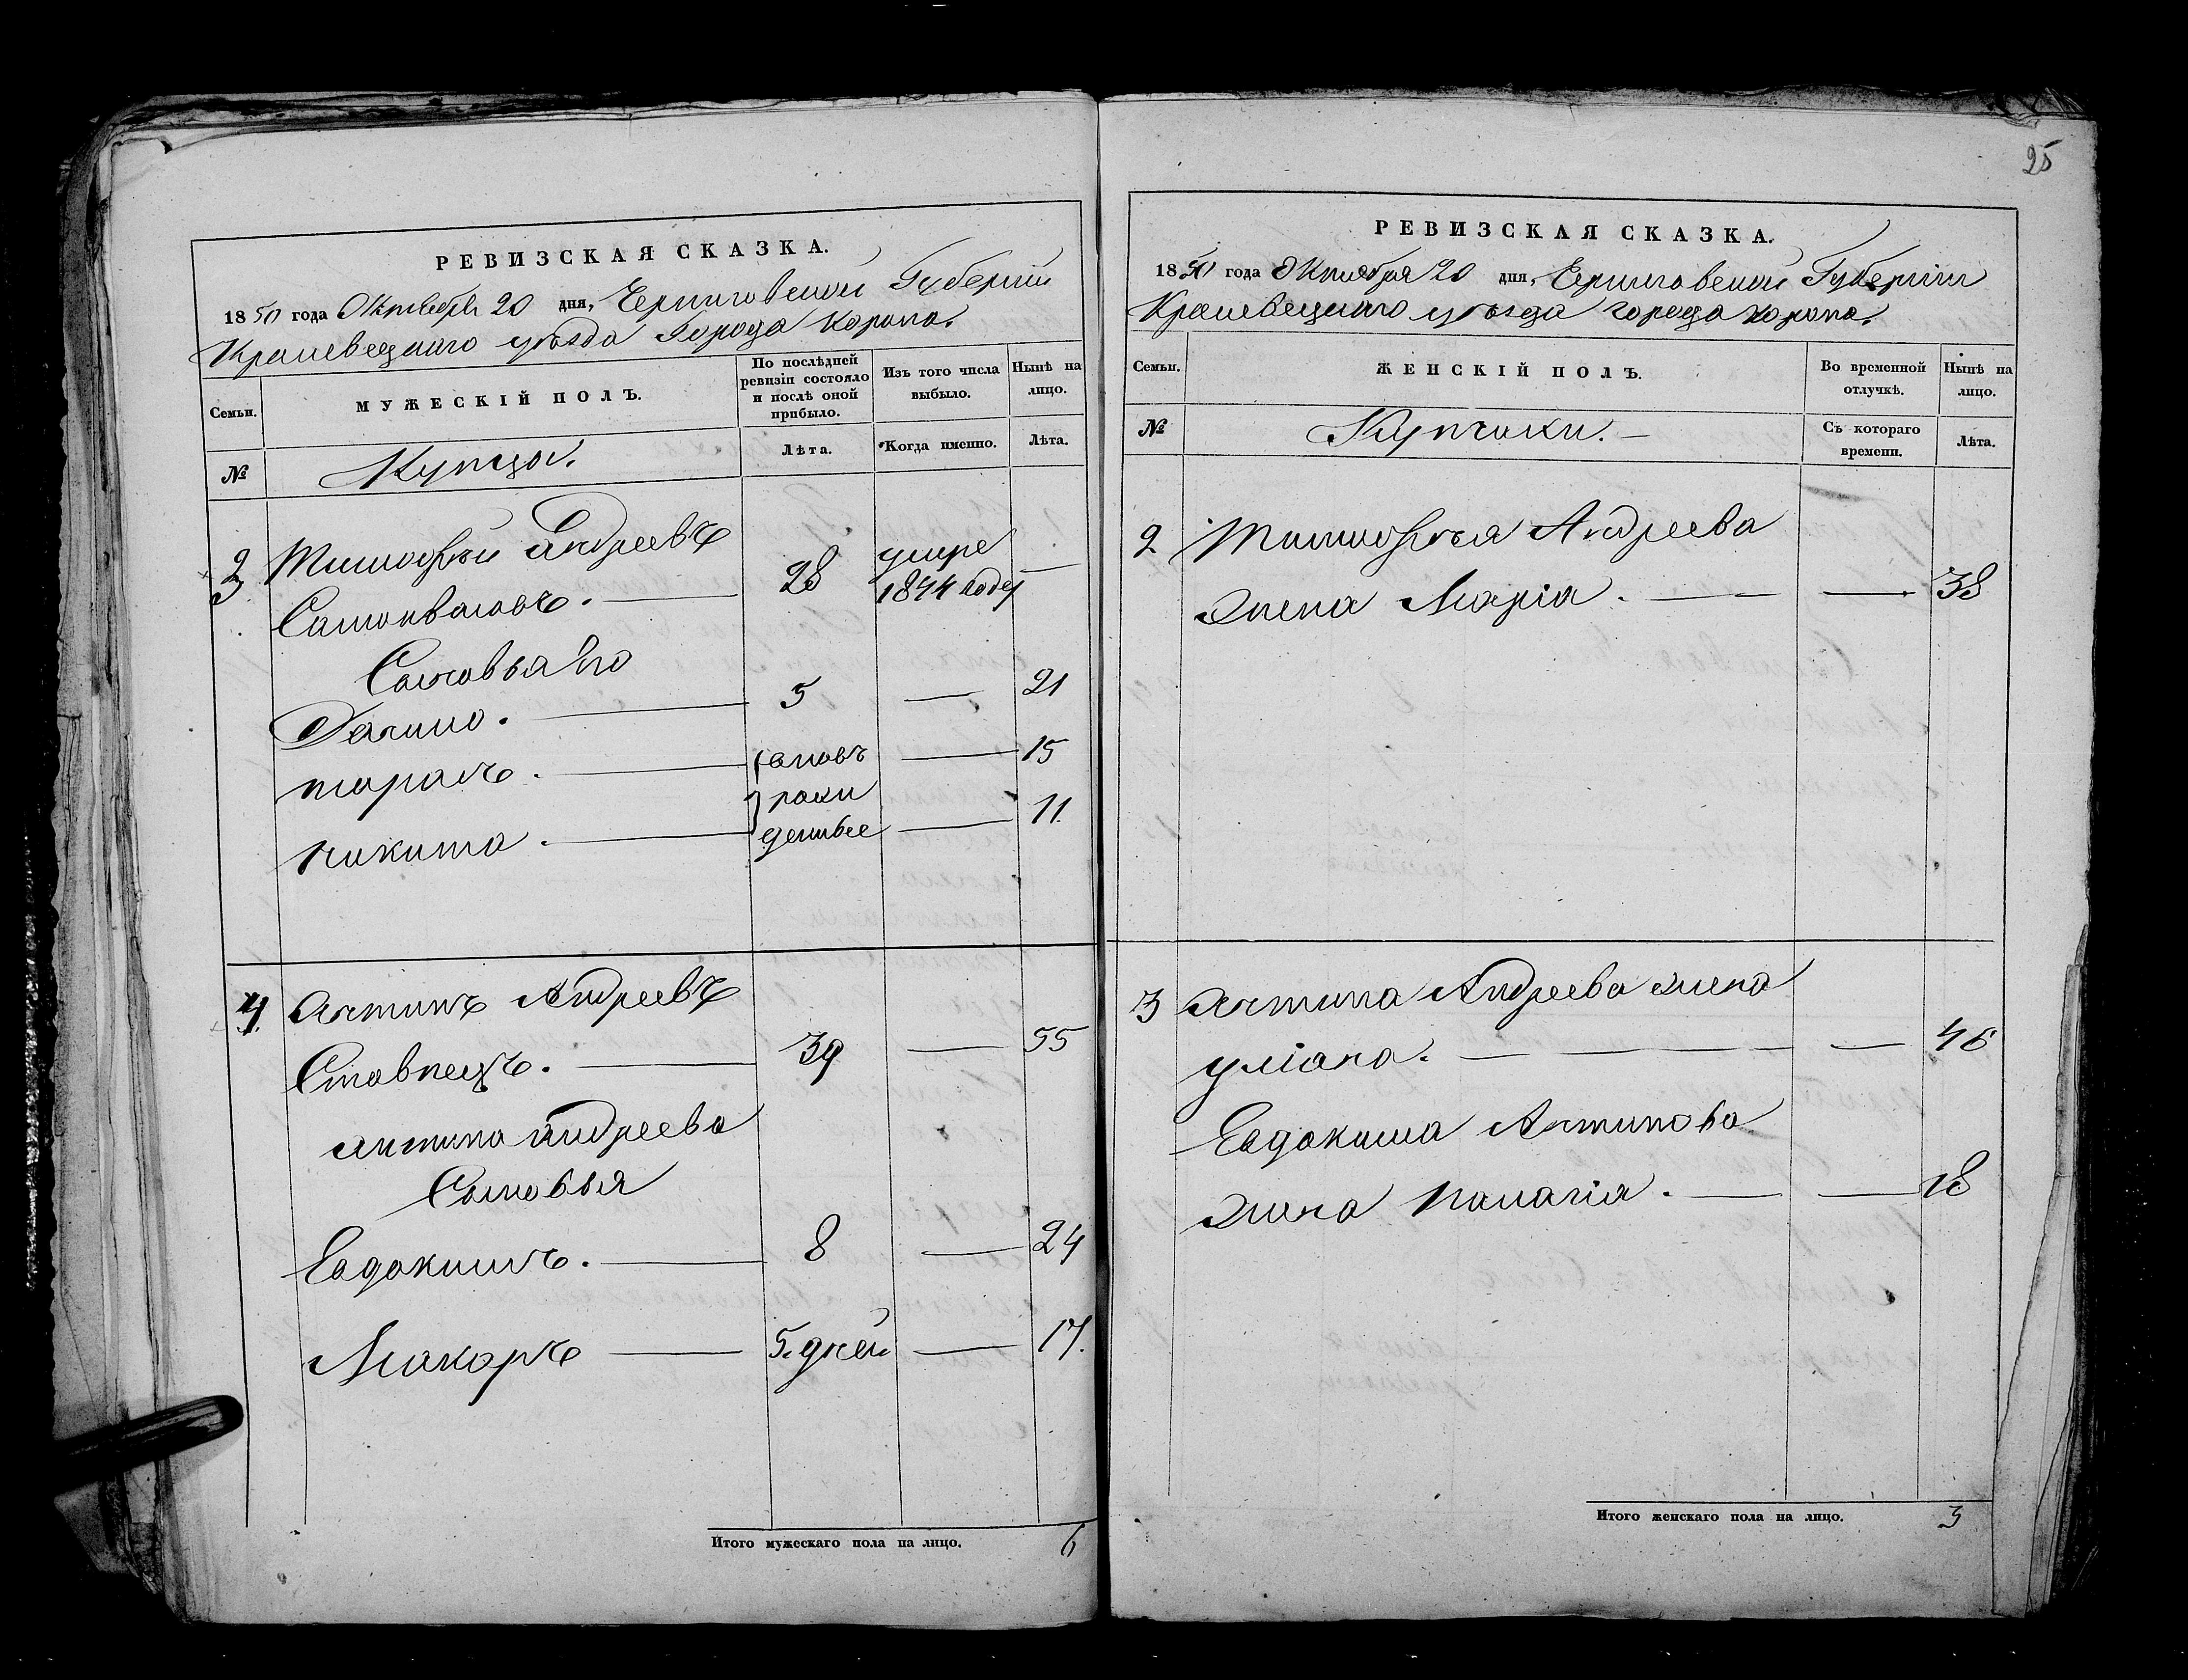 РЕВИЗСКАЯ СКАЗКА.
1850 года Октября 20 дня, Черниговской Губернии
Кролевецкаго уѣзда Города Коропа.
Семьи.
МУЖЕСКІЙ ПОЛЪ.
По послѣдней ревизіи состояло и послѣ оной прибыло.
Изъ того числа выбыло.
Нынѣ на лицо.
№
Купцы.
Лѣта.
Когда именно.
Лѣта.
3 Тимофѣй Андреевъ
28 умре 1844 году —
Сыновья его
Данило. 5 — 21
Тарасъ. вновь — 15
рожи
Никита. деные — 11.
4. Антипъ Андреевъ
Ставпецъ. 39 — 55
Антипа Андреева
Сыновья
Евдокимъ. 8 — 24
Макаръ 5. дней — 17.
Итого мужескаго пола на лицо. 6
25
РЕВИЗСКАЯ СКАЗКА.
1850 года Октября 20 дня, Черниговской Губерніи
Кролевецкаго уѣзда города Коропа.
Семьи.
ЖЕНСКІЙ ПОЛЪ.
Во временной отлучкѣ.
Нынѣ на лицо.
№
Купчихи.
Съ котораго времени.
Лѣта.
2 Тимофѣя Андреева
Жена Марія. — 38
3 Антипа Андреева жена
Уліана. — 46
Евдокима Антипова
Жена — 18
Итого женскаго пола на лицо. 3